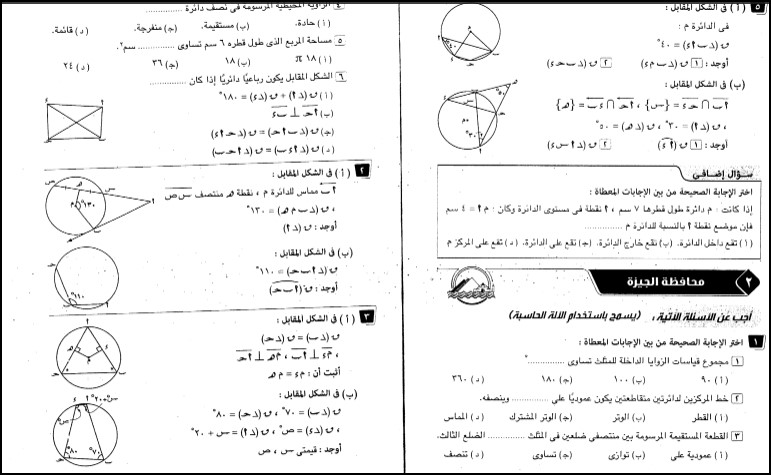 ٥ (أ) فى الشكل المقابل :
فى الدائرة م :
ق (د ب ٢ ء) = ٤٠°
أوجد : ١ ق (د ب م ء) ٢ ق (د ب حـ ء)
(ب) فى الشكل المقابل :
٢ب ∩ حـ ء = {س} ، ٢حـ ∩ ء ب = {هـ}
، ق (د ٢) = ٣٠° ، ق (د هـ) = ٥٠°
أوجد : ١ ق (٢ء) ٢ ق (د ٢ س ء)
سؤال إضافى
اختر الإجابة الصحيحة من بين الإجابات المعطاة :
إذا كانت : م دائرة طول قطرها ٧ سم ، ٢ نقطة فى مستوى الدائرة وكان : م ٢ = ٤ سم
فإن موضع نقطة ٢ بالنسبة للدائرة م ..............
(١) تقع داخل الدائرة. (ب) تقع خارج الدائرة. (جـ) تقع على الدائرة. (د) تقع على المركز م
٢ محافظة الجيزة
أجب عن الأسئلة الآتية : (يسمح باستخدام الآلة الحاسبة)
١ اختر الإجابة الصحيحة من بين الإجابات المعطاة :
١ مجموع قياسات الزوايا الداخلة للمثلث تساوى ..............°
(أ) ٩٠ (ب) ١٠٠ (جـ) ١٨٠ (د) ٣٦٠
٢ خط المركزين لدائرتين متقاطعتين يكون عموديًا على .............. وينصفه.
(أ) القطر (ب) الوتر (جـ) الوتر المشترك (د) المماس
٣ القطعة المستقيمة المرسومة بين منتصفى ضلعين فى مثلث .............. الضلع الثالث.
(أ) عمودية على (ب) توازى (جـ) تساوى (د) تنصف
٤ الزاوية المحيطية المرسومة فى نصف دائرة ..............
(أ) حادة. (ب) مستقيمة. (جـ) منفرجة. (د) قائمة.
٥ مساحة المربع الذى طول قطره ٦ سم تساوى .............. سم٢.
(أ) ١٨ π (ب) ١٨ (جـ) ٣٦ (د) ٢٤
٦ الشكل المقابل يكون رباعيًا دائريًا إذا كان ..............
(أ) ق (د ٢) + ق (د ء) = ١٨٠°
(ب) ٢حـ ⊥ ب ء
(جـ) ق (د ب ٢ حـ) = ق (د حـ ٢ ء)
(د) ق (د ٢ ء ب) = ق (د ٢ حـ ب)
٢ (أ) فى الشكل المقابل :
٢ب مماس للدائرة م ، نقطة هـ منتصف س ص
، ق (د ب م هـ) = ١٣٠°
أوجد : ق (د ٢)
(ب) فى الشكل المقابل :
ق (د ٢ ب حـ) = ١١٠°
أوجد : ق (٢ ب حـ)
٣ (أ) فى الشكل المقابل :
ق (د ب) = ق (د حـ)
، م ء ⊥ ٢ب ، م هـ ⊥ ٢حـ
أثبت أن : م ء = م هـ
(ب) فى الشكل المقابل :
ق (د ب) = ٧٠° ، ق (د حـ) = ٨٠°
، ق (د ء) = ص° ، ق (د ٢) = س + ٢٠°
أوجد : قيمتى س ، ص